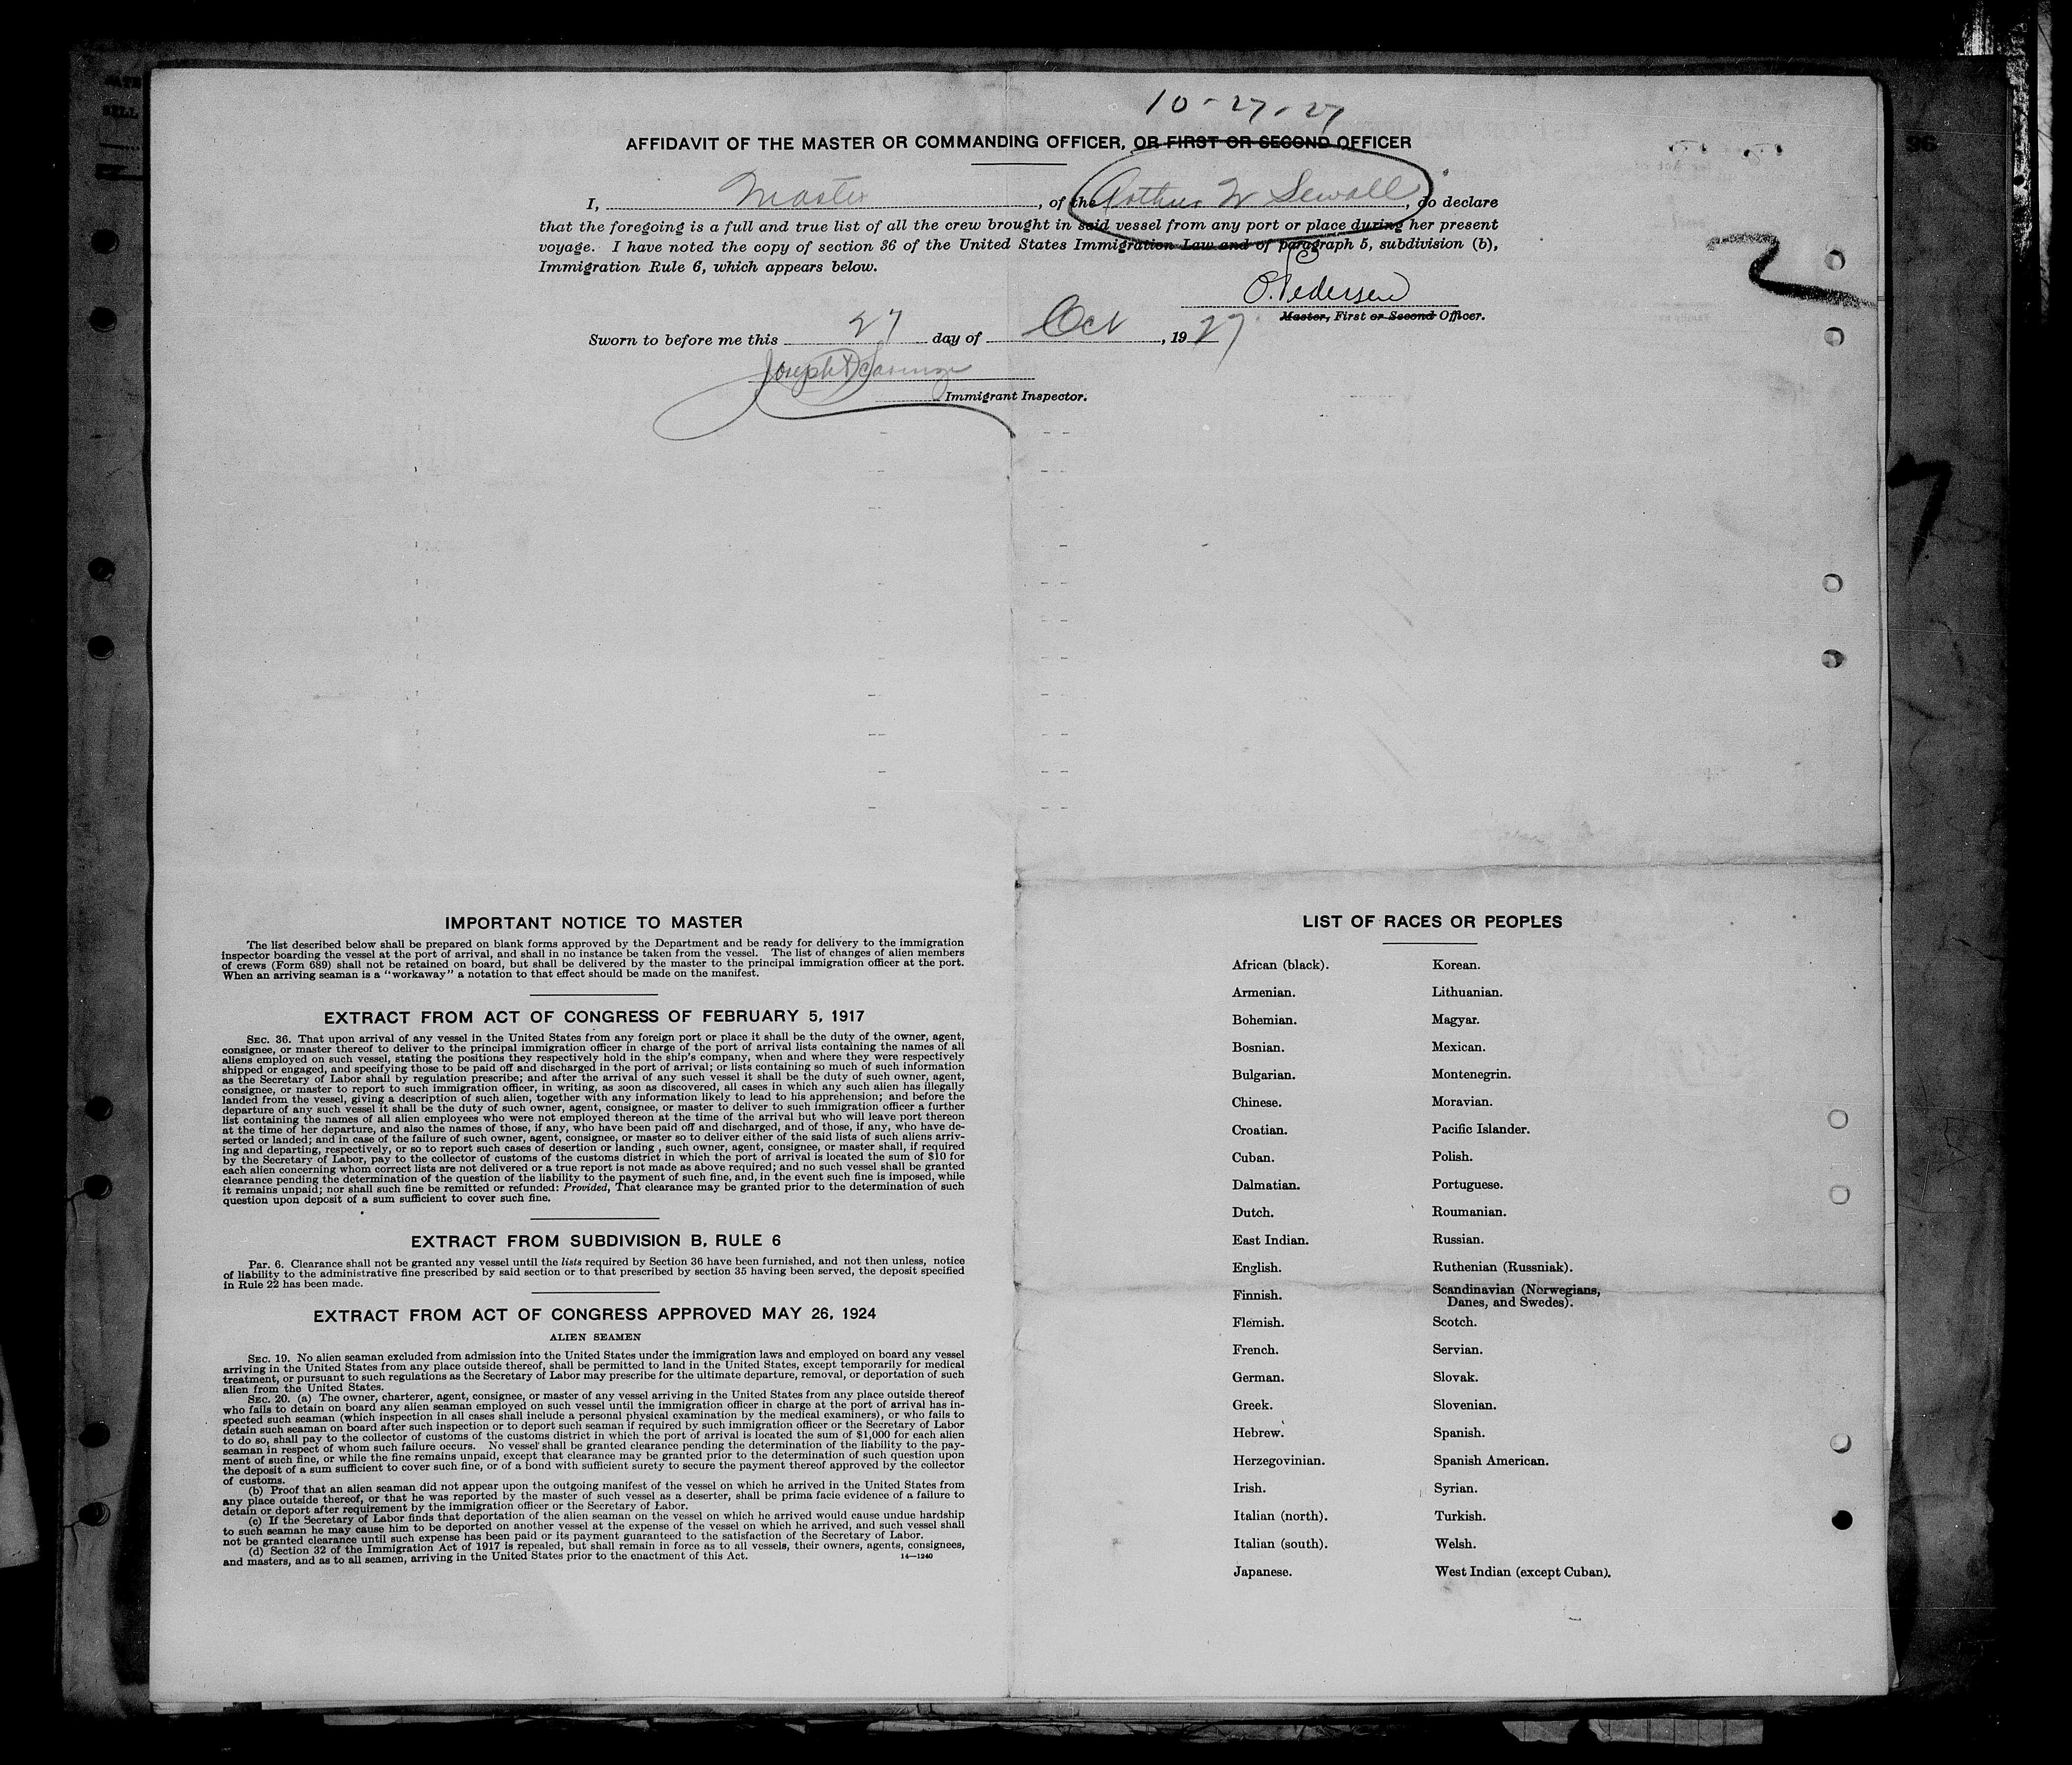 10-27-27
AFFIDAVIT OF THE MASTER OR COMMANDING OFFICER, OR FIRST OR SECOND OFFICER
I, Master, of the Arthur W Sewall, do declare
that the foregoing is a full and true list of all the crew brought in said vessel from any port or place during her present
voyage. I have noted the copy of section 36 of the United States Immigration Law and of paragraph 5, subdivision (b),
Immigration Rule 6, which appears below.
O. Pedersen
Master, First or Second Officer.
Sworn to before me this 27 day of Oct, 1927
Joseph
Immigrant Inspector.
2
7
96
IMPORTANT NOTICE TO MASTER
The list described below shall be prepared on blank forms approved by the Department and be ready for delivery to the immigration
inspector boarding the vessel at the port of arrival, and shall in no instance be taken from the vessel. The list of changes of alien members
of crews (Form 689) shall not be retained on board, but shall be delivered by the master to the principal immigration officer at the port.
When an arriving seaman is a "workaway" a notation to that effect should be made on the manifest.
EXTRACT FROM ACT OF CONGRESS OF FEBRUARY 5, 1917
SEC. 36. That upon arrival of any vessel in the United States from any foreign port or place it shall be the duty of the owner, agent,
consignee, or master thereof to deliver to the principal immigration officer in charge of the port of arrival lists containing the names of all
aliens employed on such vessel, stating the positions they respectively hold in the ship's company, when and where they were respectively
shipped or engaged, and specifying those to be paid off and discharged in the port of arrival; or lists containing so much of such information
as the Secretary of Labor shall by regulation prescribe; and after the arrival of any such vessel it shall be the duty of such owner, agent,
consignee, or master to report to such immigration officer, in writing, as soon as discovered, all cases in which any such alien has illegally
landed from the vessel, giving a description of such alien, together with any information likely to lead to his apprehension; and before the
departure of any such vessel it shall be the duty of such owner, agent, consignee, or master to deliver to such immigration officer a further
list containing the names of all alien employees who were not employed thereon at the time of the arrival but who will leave port thereon
at the time of her departure, and also the names of those, if any, who have been paid off and discharged, and of those, if any, who have de-
serted or landed; and in case of the failure of such owner, agent, consignee, or master so to deliver either of the said lists of such aliens arriv-
ing and departing, respectively, or so to report such cases of desertion or landing , such owner, agent, consignee, or master shall, if required
by the Secretary of Labor, pay to the collector of customs of the customs district in which the port of arrival is located the sum of $10 for
each alien concerning whom correct lists are not delivered or a true report is not made as above required; and no such vessel shall be granted
clearance pending the determination of the question of the liability to the payment of such fine, and, in the event such fine is imposed, while
it remains unpaid; nor shall such fine be remitted or refunded: Provided, That clearance may be granted prior to the determination of such
question upon deposit of a sum sufficient to cover such fine.
EXTRACT FROM SUBDIVISION B, RULE 6
Par. 6. Clearance shall not be granted any vessel until the lists required by Section 36 have been furnished, and not then unless, notice
of liability to the administrative fine prescribed by said section or to that prescribed by section 35 having been served, the deposit specified
in Rule 22 has been made.
EXTRACT FROM ACT OF CONGRESS APPROVED MAY 26, 1924
ALIEN SEAMEN
SEC. 19. No alien seaman excluded from admission into the United States under the immigration laws and employed on board any vessel
arriving in the United States from any place outside thereof, shall be permitted to land in the United States, except temporarily for medical
treatment, or pursuant to such regulations as the Secretary of Labor may prescribe for the ultimate departure, removal, or deportation of such
alien from the United States.
SEC. 20. (a) The owner, charterer, agent, consignee, or master of any vessel arriving in the United States from any place outside thereof
who fails to detain on board any alien seaman employed on such vessel until the immigration officer in charge at the port of arrival has in-
spected such seaman (which inspection in all cases shall include a personal physical examination by the medical examiners), or who fails to
detain such seaman on board after such inspection or to deport such seaman if required by such immigration officer or the Secretary of Labor
to do so, shall pay to the collector of customs of the customs district in which the port of arrival is located the sum of $1,000 for each alien
seaman in respect of whom such failure occurs. No vessel shall be granted clearance pending the determination of the liability to the pay-
ment of such fine, or while the fine remains unpaid, except that clearance may be granted prior to the determination of such question upon
the deposit of a sum sufficient to cover such fine, or of a bond with sufficient surety to secure the payment thereof approved by the collector
of customs.
(b) Proof that an alien seaman did not appear upon the outgoing manifest of the vessel on which he arrived in the United States from
any place outside thereof, or that he was reported by the master of such vessel as a deserter, shall be prima facie evidence of a failure to
detain or deport after requirement by the immigration officer or the Secretary of Labor.
(c) If the Secretary of Labor finds that deportation of the alien seaman on the vessel on which he arrived would cause undue hardship
to such seaman he may cause him to be deported on another vessel at the expense of the vessel on which he arrived, and such vessel shall
not be granted clearance until such expense has been paid or its payment guaranteed to the satisfaction of the Secretary of Labor.
(d) Section 32 of the Immigration Act of 1917 is repealed, but shall remain in force as to all vessels, their owners, agents, consignees,
and masters, and as to all seamen, arriving in the United States prior to the enactment of this Act.
14—1240
LIST OF RACES OR PEOPLES
African (black).
Armenian.
Bohemian.
Bosnian.
Bulgarian.
Chinese.
Croatian.
Cuban.
Dalmatian.
Dutch.
East Indian.
English.
Finnish.
Flemish.
French.
German.
Greek.
Hebrew.
Herzegovinian.
Irish.
Italian (north).
Italian (south).
Japanese.
Korean.
Lithuanian.
Magyar.
Mexican.
Montenegrin.
Moravian.
Pacific Islander.
Polish.
Portuguese.
Roumanian.
Russian.
Ruthenian (Russniak).
Scandinavian (Norwegians,
Danes, and Swedes).
Scotch.
Servian.
Slovak.
Slovenian.
Spanish.
Spanish American.
Syrian.
Turkish.
Welsh.
West Indian (except Cuban).